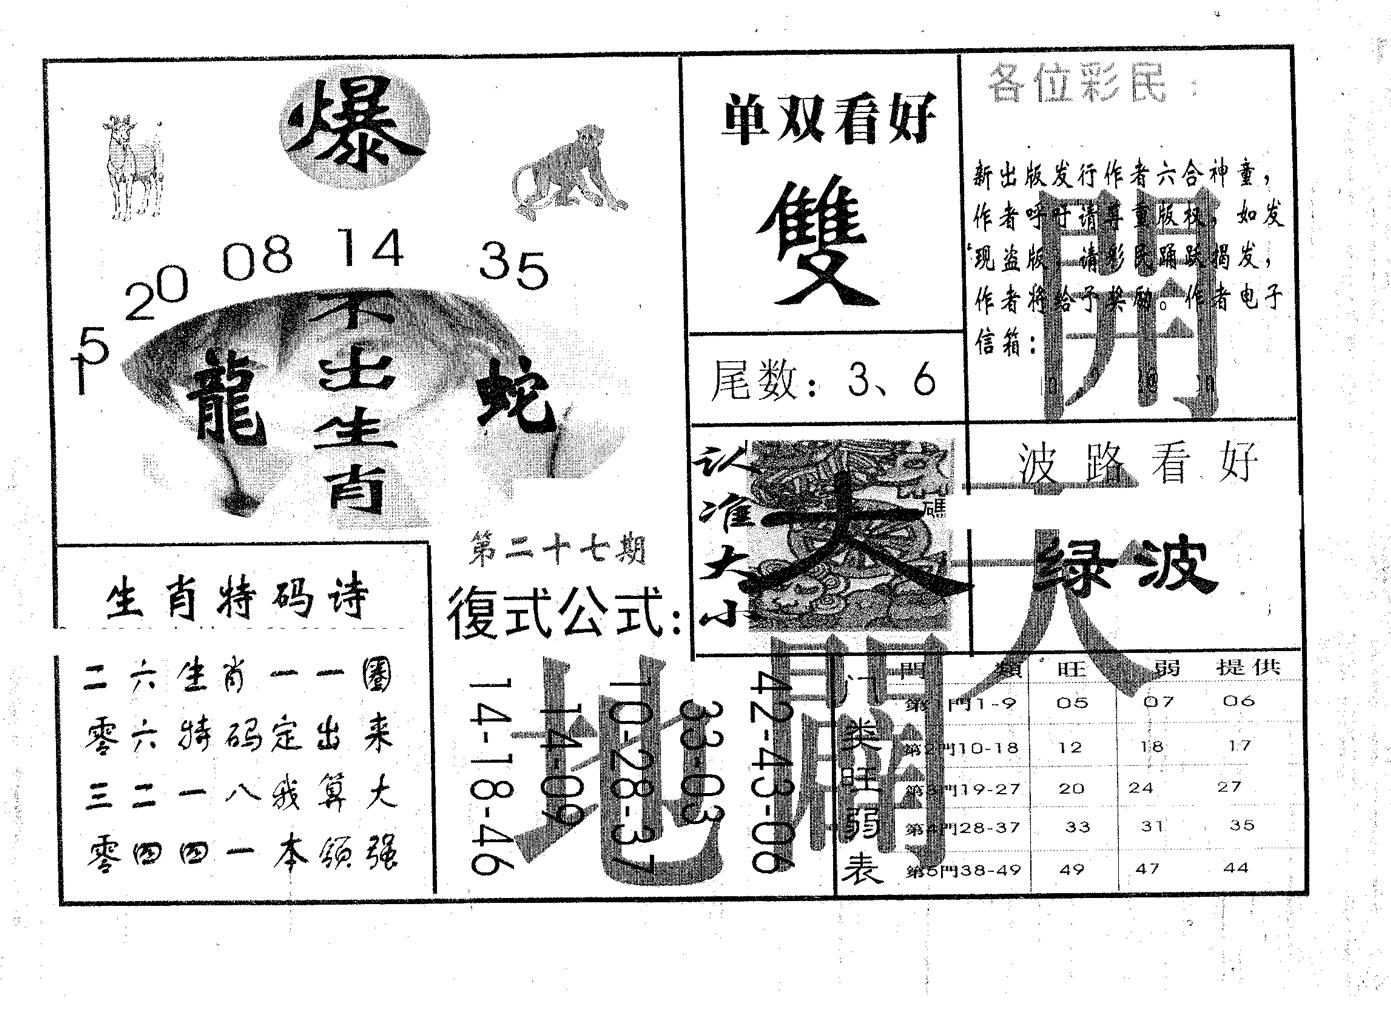 爆
15
20
08
14
35
不出生肖
龍
蛇
单双看好
雙
尾数：3、6
各位彩民：
新出版发行作者六合神童，
作者呼吁请尊重版权，如发
现盗版，请彩民踊跃揭发，
作者将给予奖励。作者电子
信箱：
開
认准大小
大
碼
波路看好
绿波
天
第二十七期
復式公式:
14-18-46
14-09
10-28-37
33-03
42-43-06
地
闢
生肖特码诗
二六生肖一一圈
零六特码定出来
三二一八我算大
零四四一本领强
门类旺弱表
門 類 旺 弱 提供
第1門1-9 05 07 06
第2門10-18 12 18 17
第3門19-27 20 24 27
第4門28-37 33 31 35
第5門38-49 49 47 44